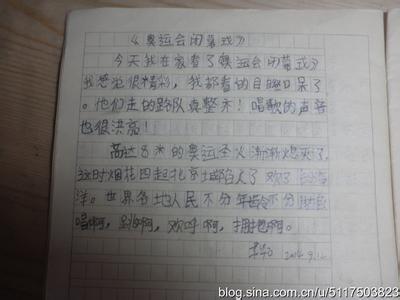 《奥运会闭幕式》
今天我在家看了《奥运会闭幕式》
我感觉很精彩,我都看的目瞪口呆了
。他们走的路队真整齐!唱歌的声音
也很洪亮!
高达8米的奥运圣火渐渐熄灭了,
这时烟花四起北京城陷入了欢乐的海
洋。世界各地人民不分年龄不分
唱啊,跳啊,欢呼啊,拥抱啊。
9.12
blog.sina.com.cn/u/5117503823